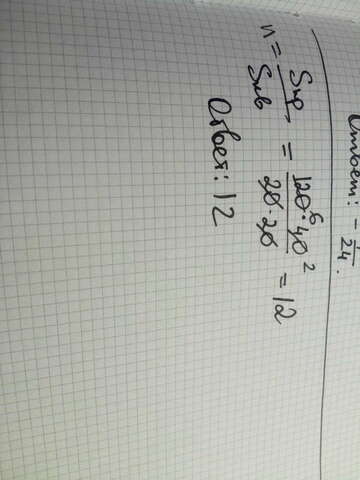 Ответ: - 1/24.
n = Sпр/Sкв = 120⁶·40²/20·20 = 12
Ответ: 12